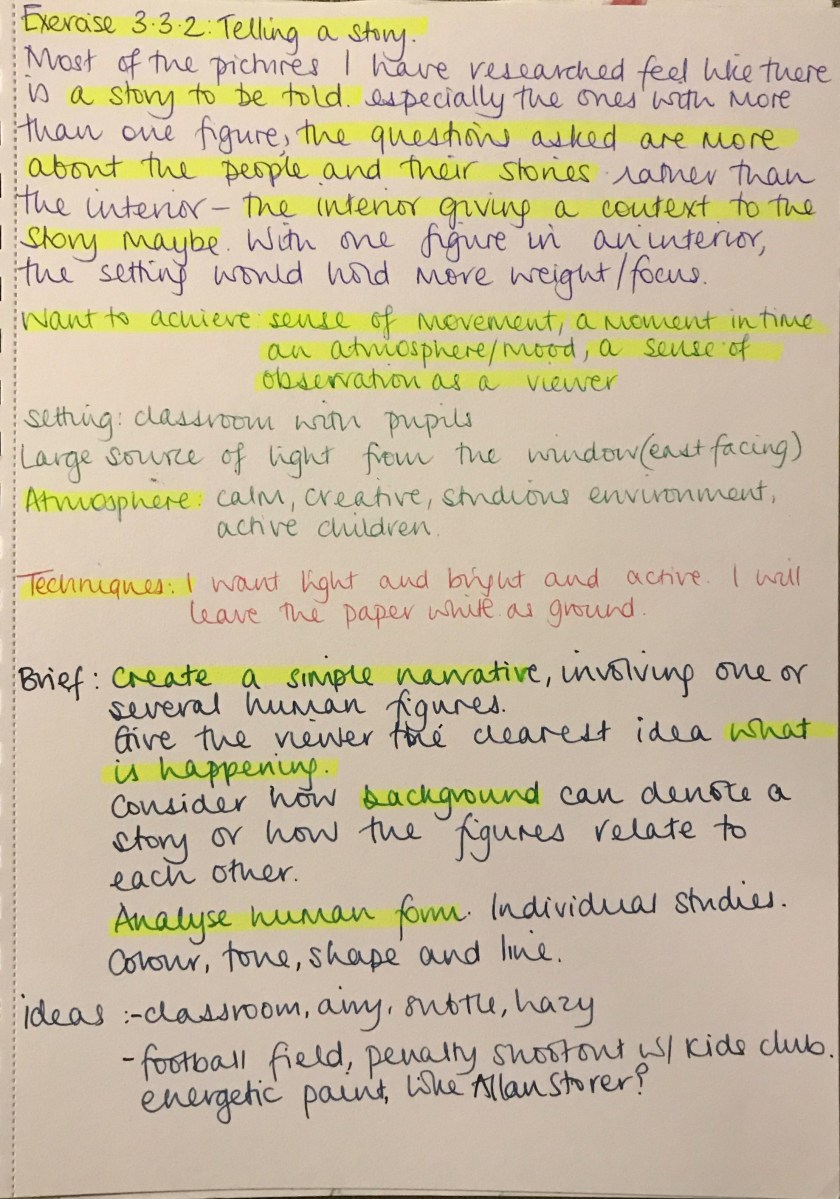 Exercise 3.3.2: Telling a story.
Most of the pictures I have researched feel like there
is a story to be told. especially the ones with more
than one figure, the questions asked are more
about the people and their stories rather than
the interior – the interior giving a context to the
story maybe. With one figure in an interior,
the setting would hold more weight/focus.
Want to achieve sense of movement, a moment in time
an atmosphere/mood, a sense of
observation as a viewer
setting: classroom with pupils
Large source of light from the window (east facing)
Atmosphere: calm, creative, studious environment,
active children.
Techniques: I want light and bright and active. I will
leave the paper white as ground.
Brief: Create a simple narrative, involving one or
several human figures.
Give the viewer the clearest idea what
is happening.
Consider how background can denote a
story or how the figures relate to
each other.
Analyse human form. Individual studies.
Colour, tone, shape and line.
ideas :-classroom, airy, subtle, hazy
- football field, penalty shootout w/ kids club.
energetic paint, like Allan Storer?